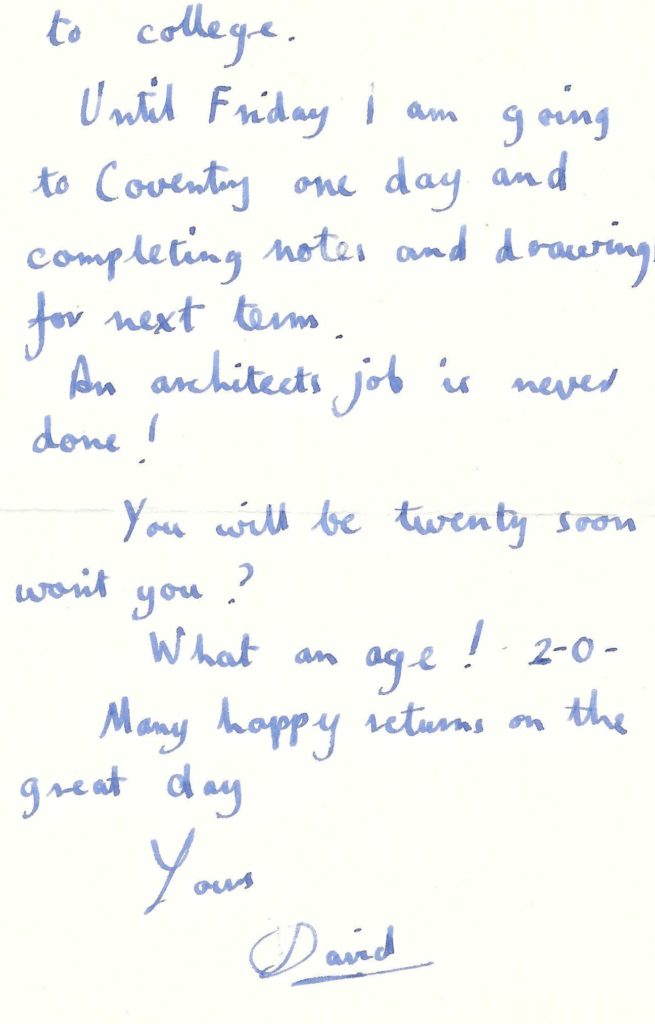 to college.
Until Friday I am going
to Coventry one day and
completing notes and drawings
for next term.
An architects job is never
done!
You will be twenty soon
won't you?
What an age! 2-0-
Many happy returns on the
great day
Yours
David